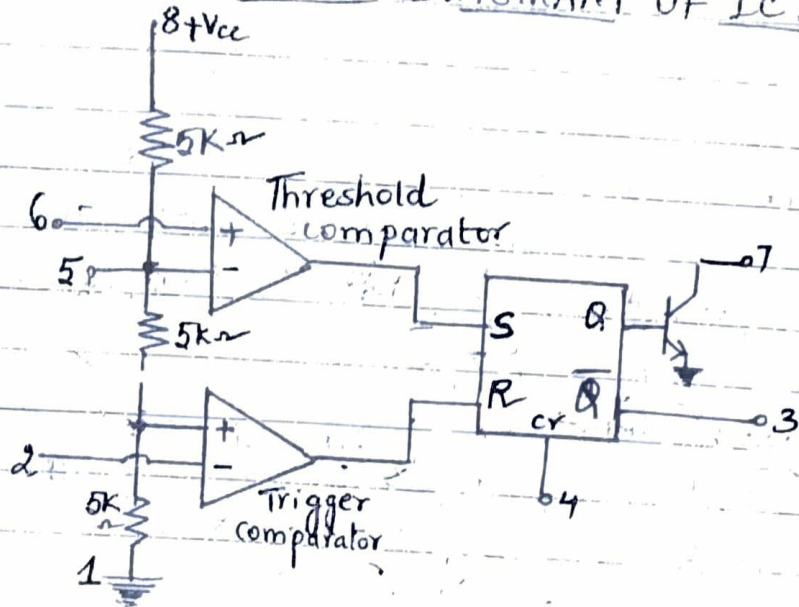 OF IC
8+Vcc
5KΩ
6
Threshold
comparator
+
-
5
7
5KΩ
S
Q
R
Q̅
cr
3
+
-
2
4
5K
Ω
Trigger
comparator
1